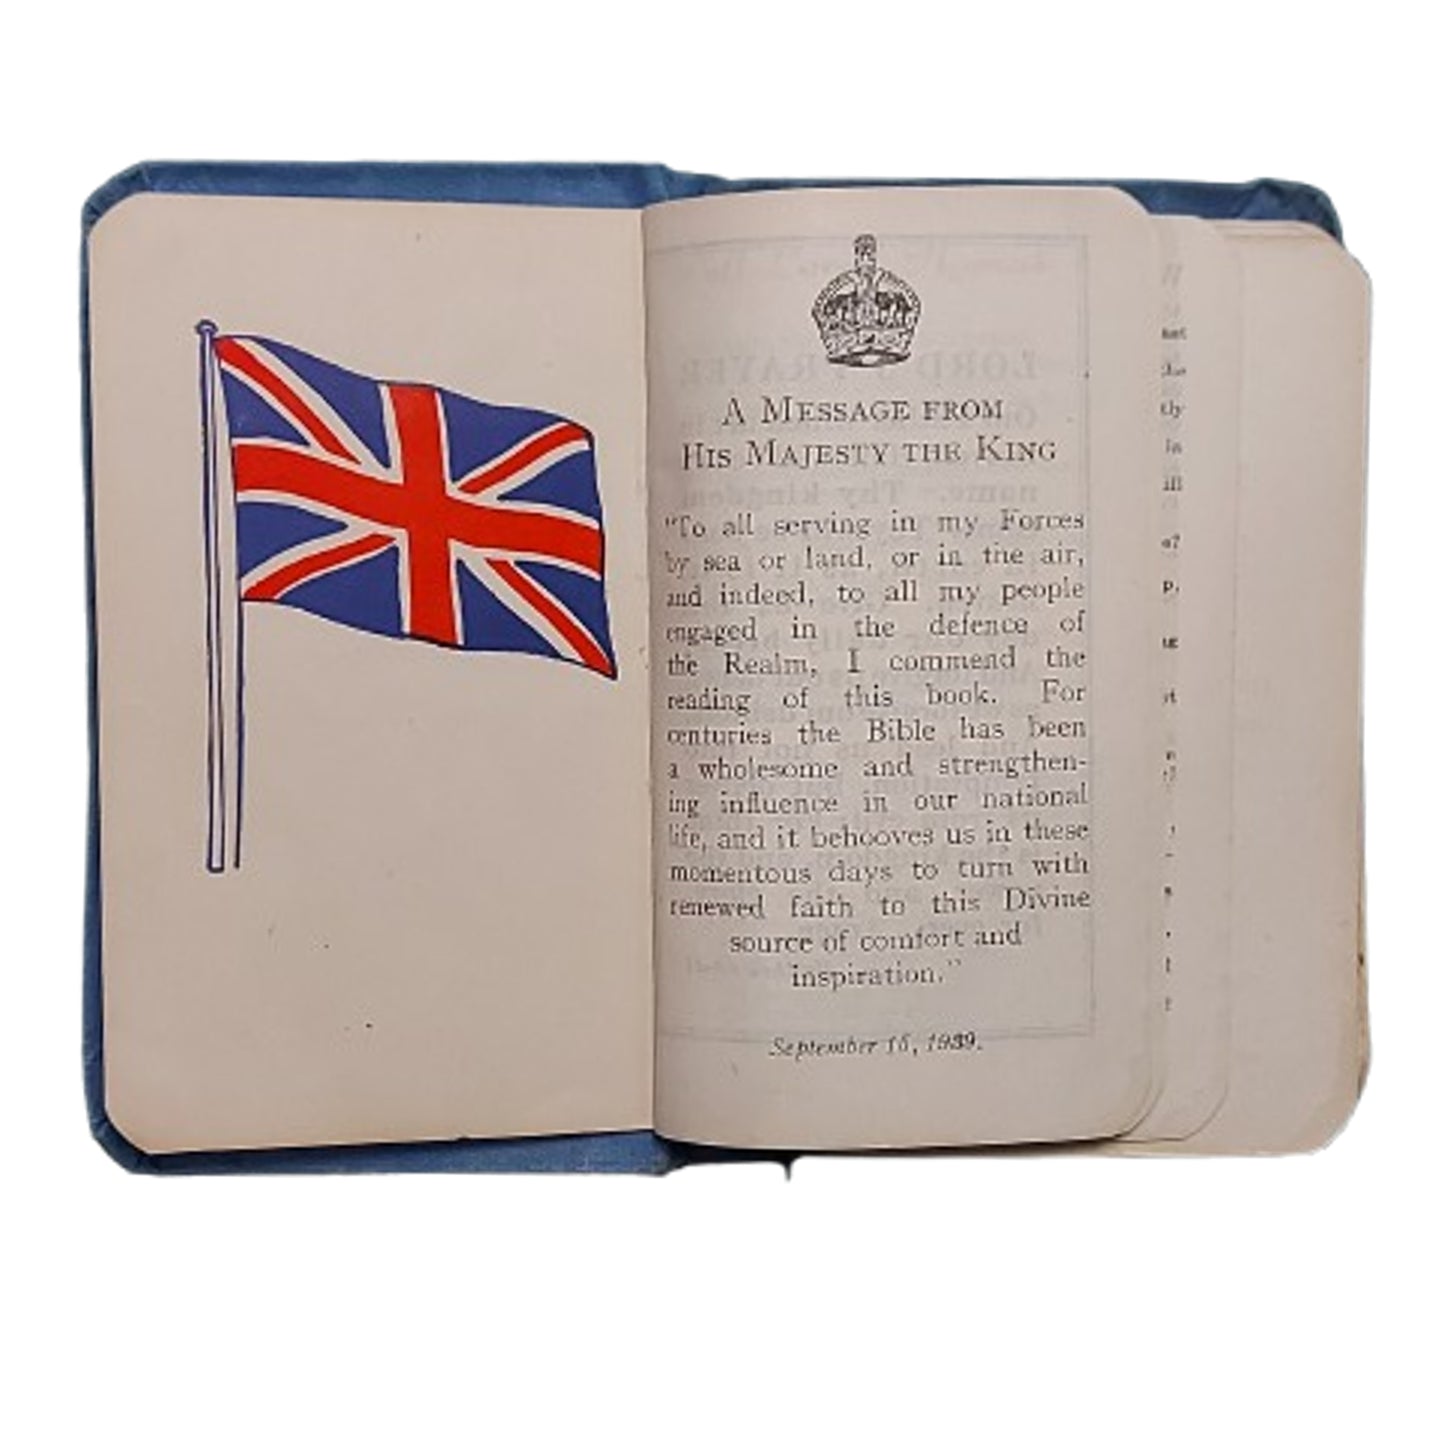 A Message from
His Majesty the King
"To all serving in my Forces
by sea or land, or in the air,
and indeed, to all my people
engaged in the defence of
the Realm, I commend the
reading of this book. For
centuries the Bible has been
a wholesome and strengthen-
ing influence in our national
life, and it behooves us in these
momentous days to turn with
renewed faith to this Divine
source of comfort and
inspiration."
September 15, 1939.